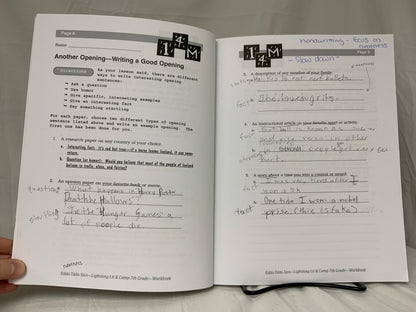 Page 8
1.4.M
Name
Another Opening—Writing a Good Opening
Directions
As your lesson said, there are different
ways to write interesting opening
sentences:
- Ask a question
- Use humor
- Give specific, interesting examples
- Give an interesting fact
- Say something startling
For each paper, choose two different types of opening
sentence listed above and write an example opening. The
first one has been done for you.
1. A research paper on any country of your choice.
a. Interesting fact: It's old but true—if a horse leaves Iceland, it can never
return.
b. Question (or humor): Would you believe that most of the people of Iceland
believe in trolls, elves, and fairies?
2. An opinion paper on your favorite book or movie.
question
What happens in Harry Potter
Deathly Hallows?
startling
In the Hunger Games a
lot of people die.
neatness
Eddo-Tekko-Spin—Lightning Lit & Comp 7th Grade—Workbook
Page 9
1.4.M
handwriting - focus on
neatness
- Slow down"
3. A description of any vacation of your family.
neatness
fact
4. An instructional article on your favorite sport or activity.
fact
is known as
in other
startling
In football people get very
hurt.
5. A story about a time you won a contest or award.
fact
I was very tired after I
won a 5k
fact
One time I won a nobel
prise. (this is fake)
Lightning Lit & Comp 7th Grade—Workbook